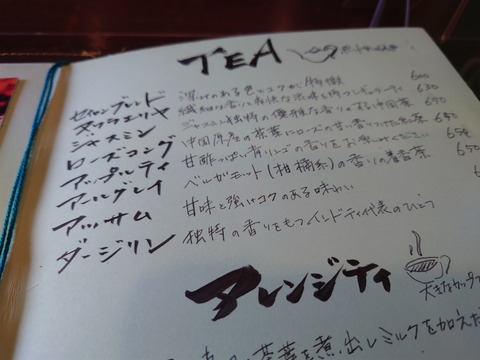 TEA
セイロンブレンド 深みのある色とコクが特徴 600
ヌワラエリヤ 繊細な香りと爽快な渋味を持つ 630
ジャスミン ジャスミン独特の優雅な香りのある中国茶 650
ローズコング 中国原産の茶葉にローズの甘い香りの紅茶 650
アップルティ 甘酸っぱい青リンゴの香りをお楽しみください 650
アールグレイ ベルガモット(柑橘系)の香りの着香茶 650
アッサム 甘味と強いコクのある味わい
ダージリン 独特の香りをもつインドティ代表のひとつ
アレンジティ
大きなカップで
茶葉を煮出しミルクを加えた